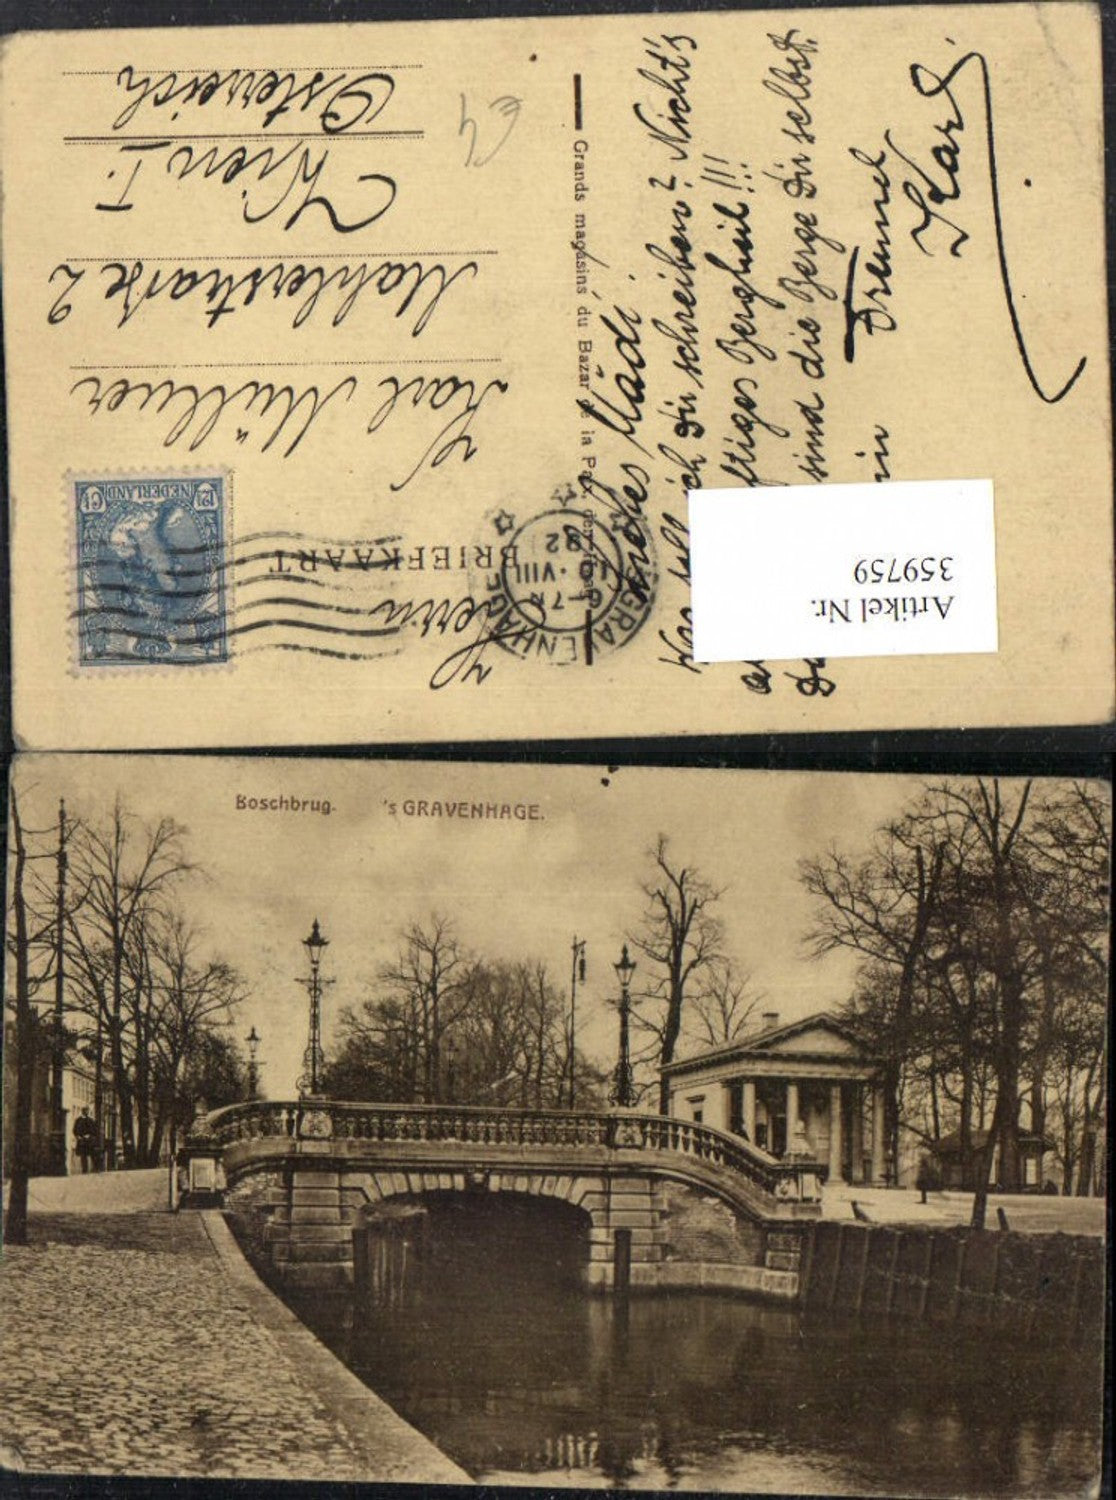 Herrn
Karl Müllner
Mahlerstraße 2
Wien I.
Österreich
BRIEFKAART
NEDERLAND
12½ Ct
12½ Ct
'S GRAVENHAGE
6-7 N
10.VIII
92
€4
Grands magasins du Bazar de la Paix,
Mädi!
Was soll ich Dir schreiben? Nicht's
als
ftiges Bergheil!!!
sind die Berge Dir selbst.
in
Dremmel
Karl
Artikel Nr.
359759
Boschbrug. 's GRAVENHAGE.